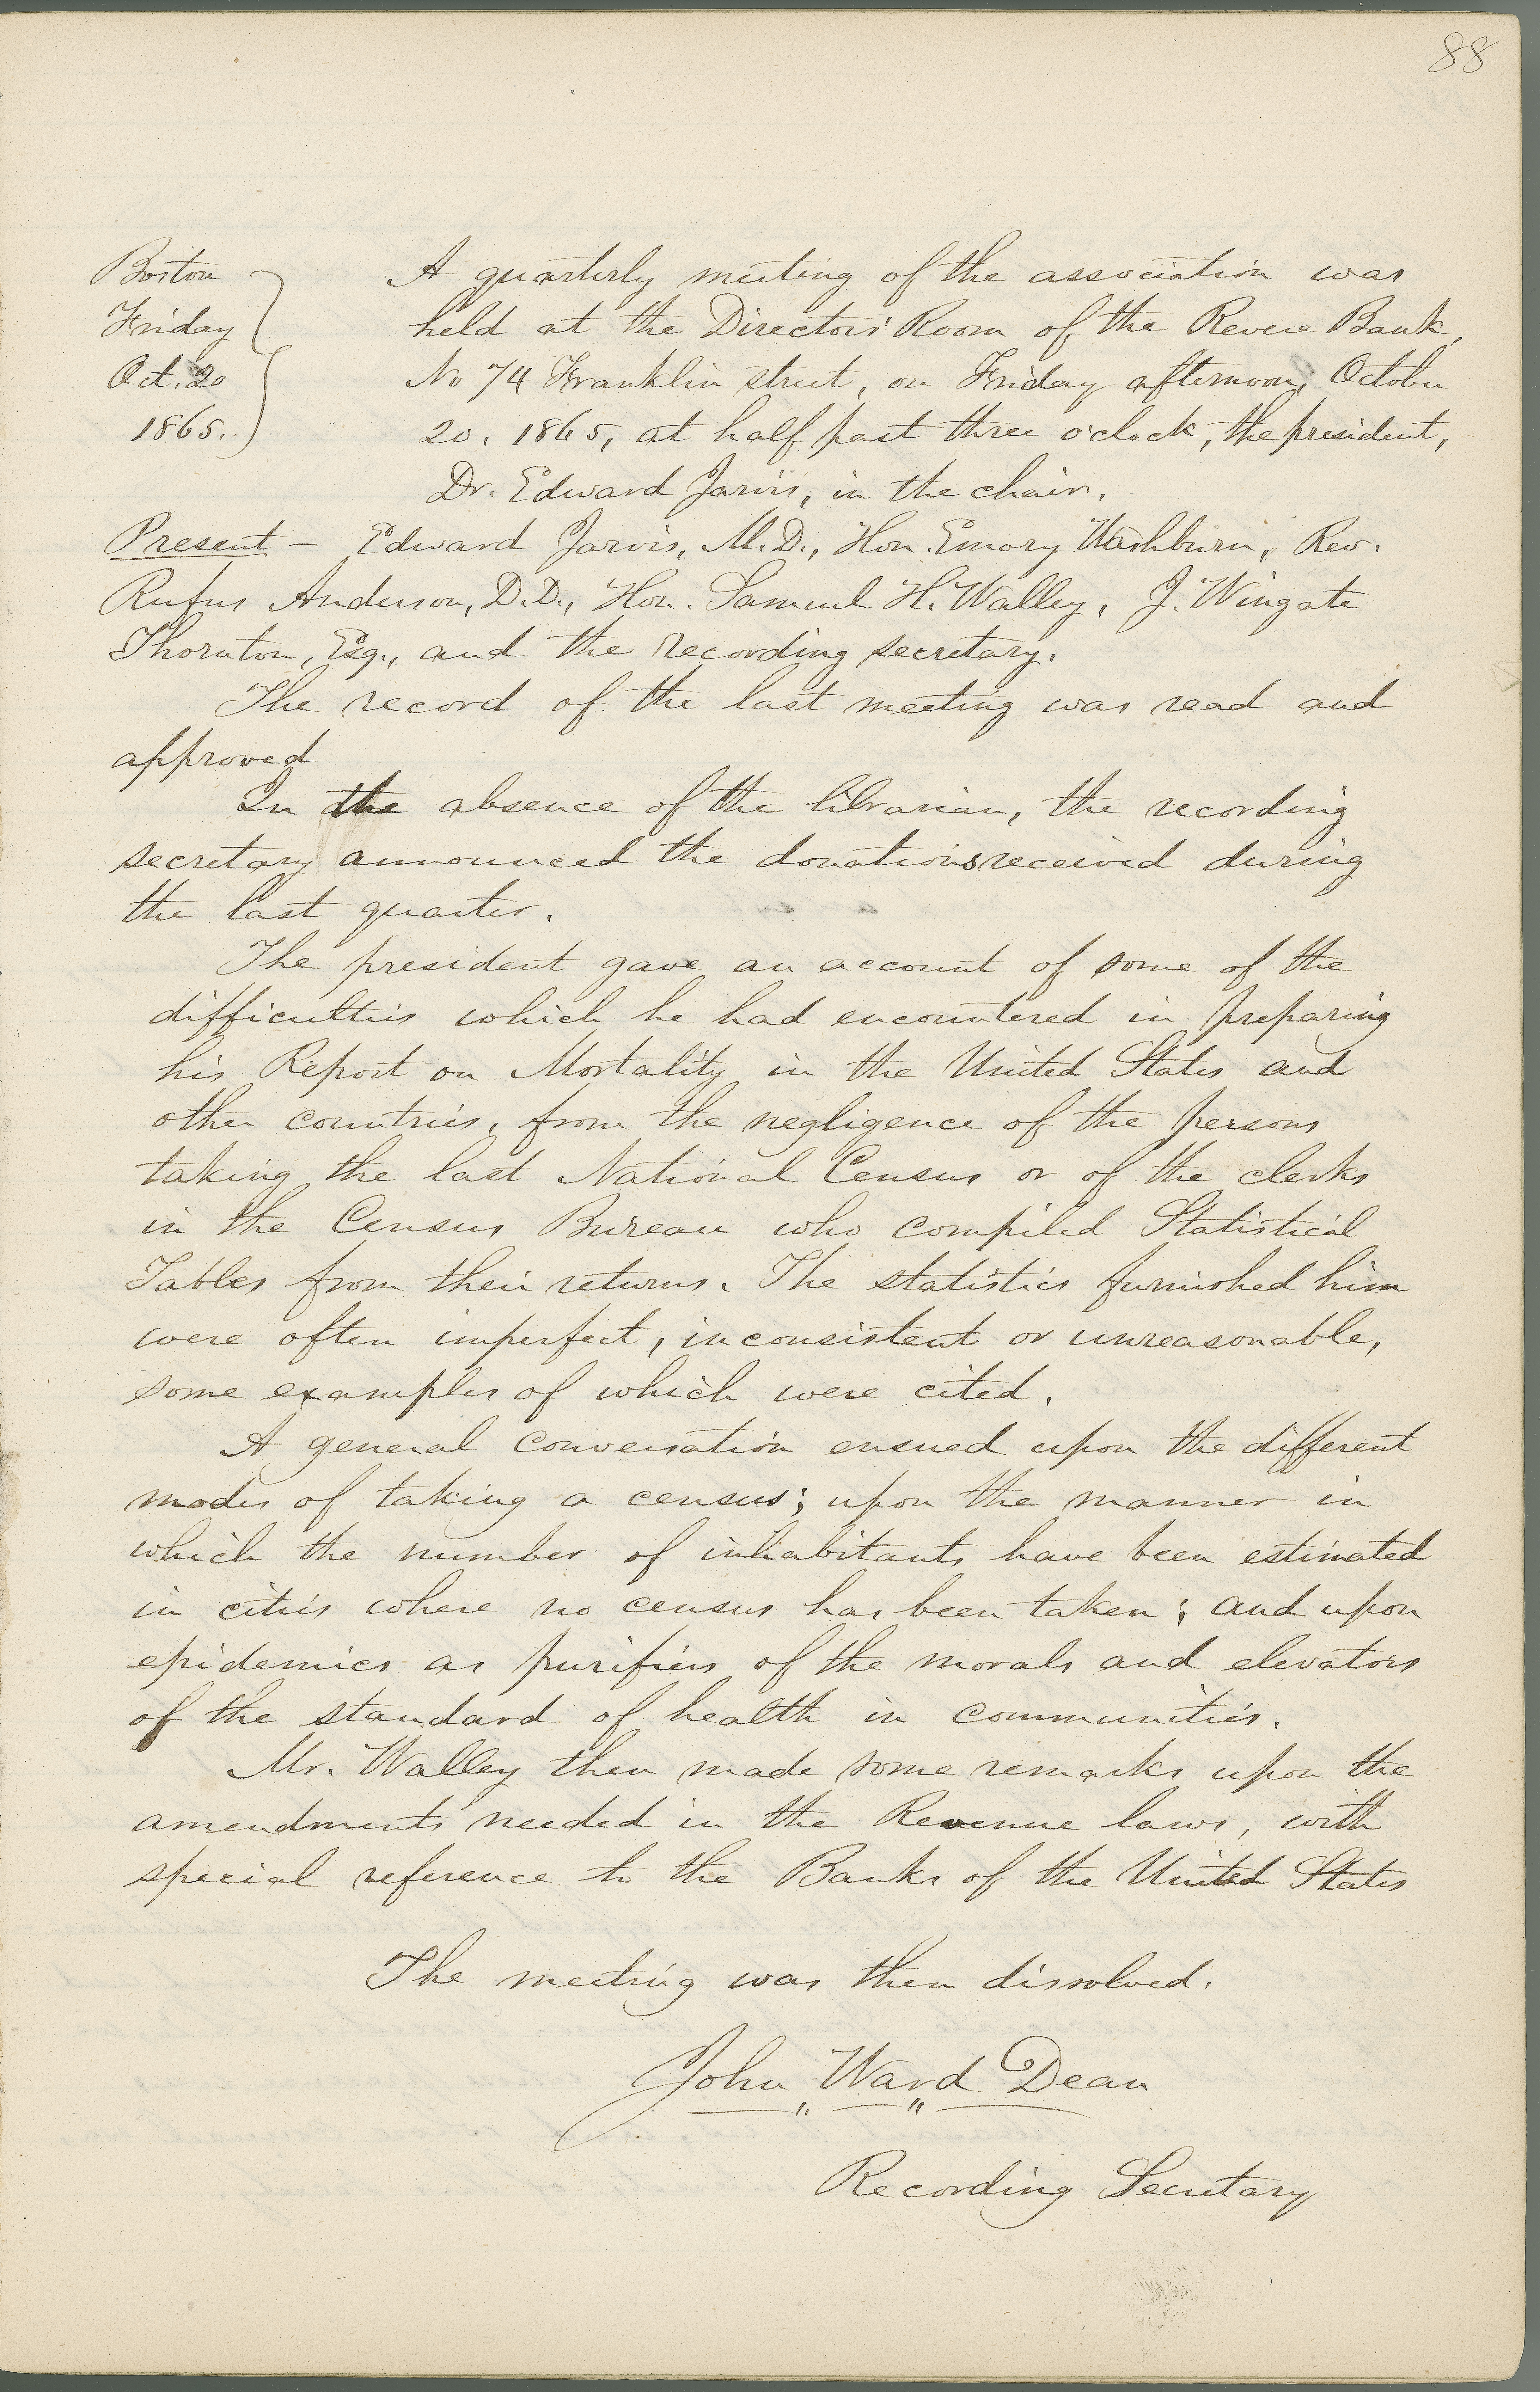 88
Boston
Friday
Oct. 20
1865.
A quarterly meeting of the association was
held at the Directors' Room of the Revere Bank,
No 74 Franklin street, on Friday afternoon, October
20, 1865, at half past three o'clock, the president,
Dr. Edward Jarvis, in the chair.
Present — Edward Jarvis, M.D., Hon. Emory Washburn, Rev.
Rufus Anderson, D.D., Hon. Samuel H. Walley, J. Wingate
Thornton, Esq., and the recording secretary.
The record of the last meeting was read and
approved
In the absence of the librarian, the recording
secretary announced the donations received during
the last quarter.
The president gave an account of some of the
difficulties which he had encountered in preparing
his Report on Mortality in the United States and
other countries, from the negligence of the persons
taking the last National Census or of the clerks
in the Census Bureau who compiled Statistical
Tables from their returns. The statistics furnished him
were often imperfect, inconsistent or unreasonable,
some examples of which were cited.
A general conversation ensued upon the different
modes of taking a census; upon the manner in
which the number of inhabitants have been estimated
in cities where no census has been taken; and upon
epidemics as purifiers of the morals and elevators
of the standard of health in communities.
Mr. Walley then made some remarks upon the
amendments needed in the Revenue laws, with
special reference to the Banks of the United States
The meeting was then dissolved.
John Ward Dean
Recording Secretary